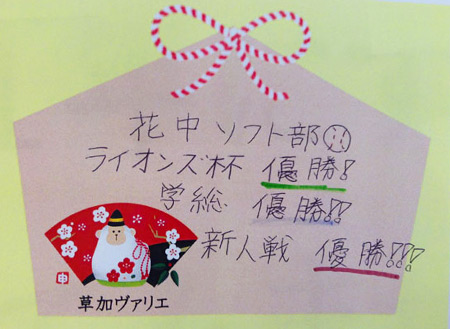 花中 ソフト部
ライオンズ杯 優勝!
学総 優勝!!
新人戦 優勝!!!
申
草加ヴァリエ